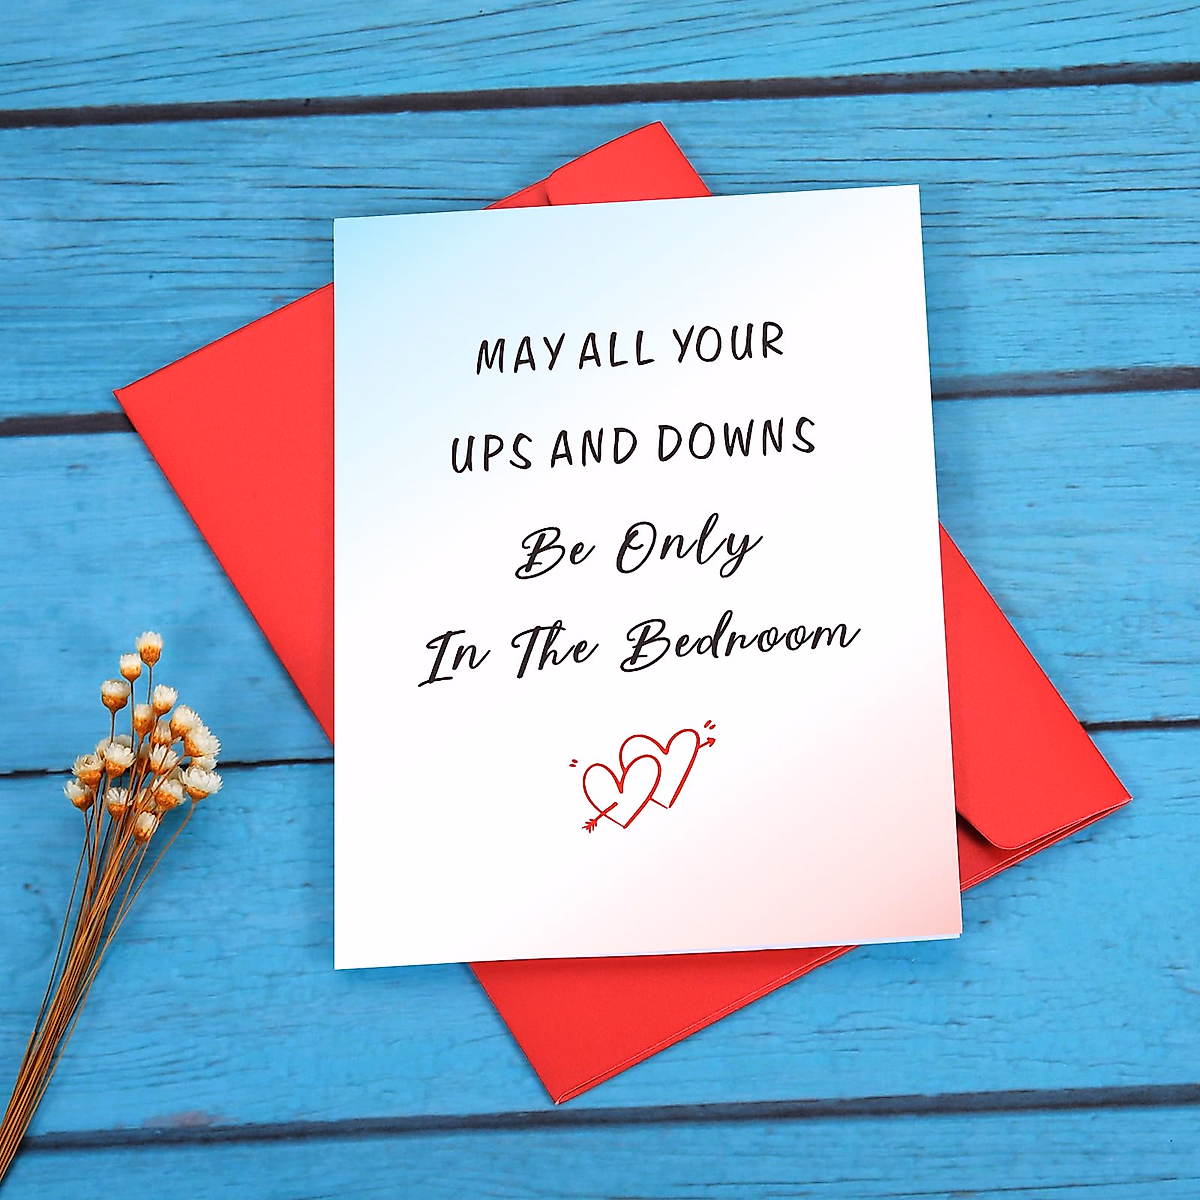 MAY ALL YOUR
UPS AND DOWNS
Be Only
In The Bedroom